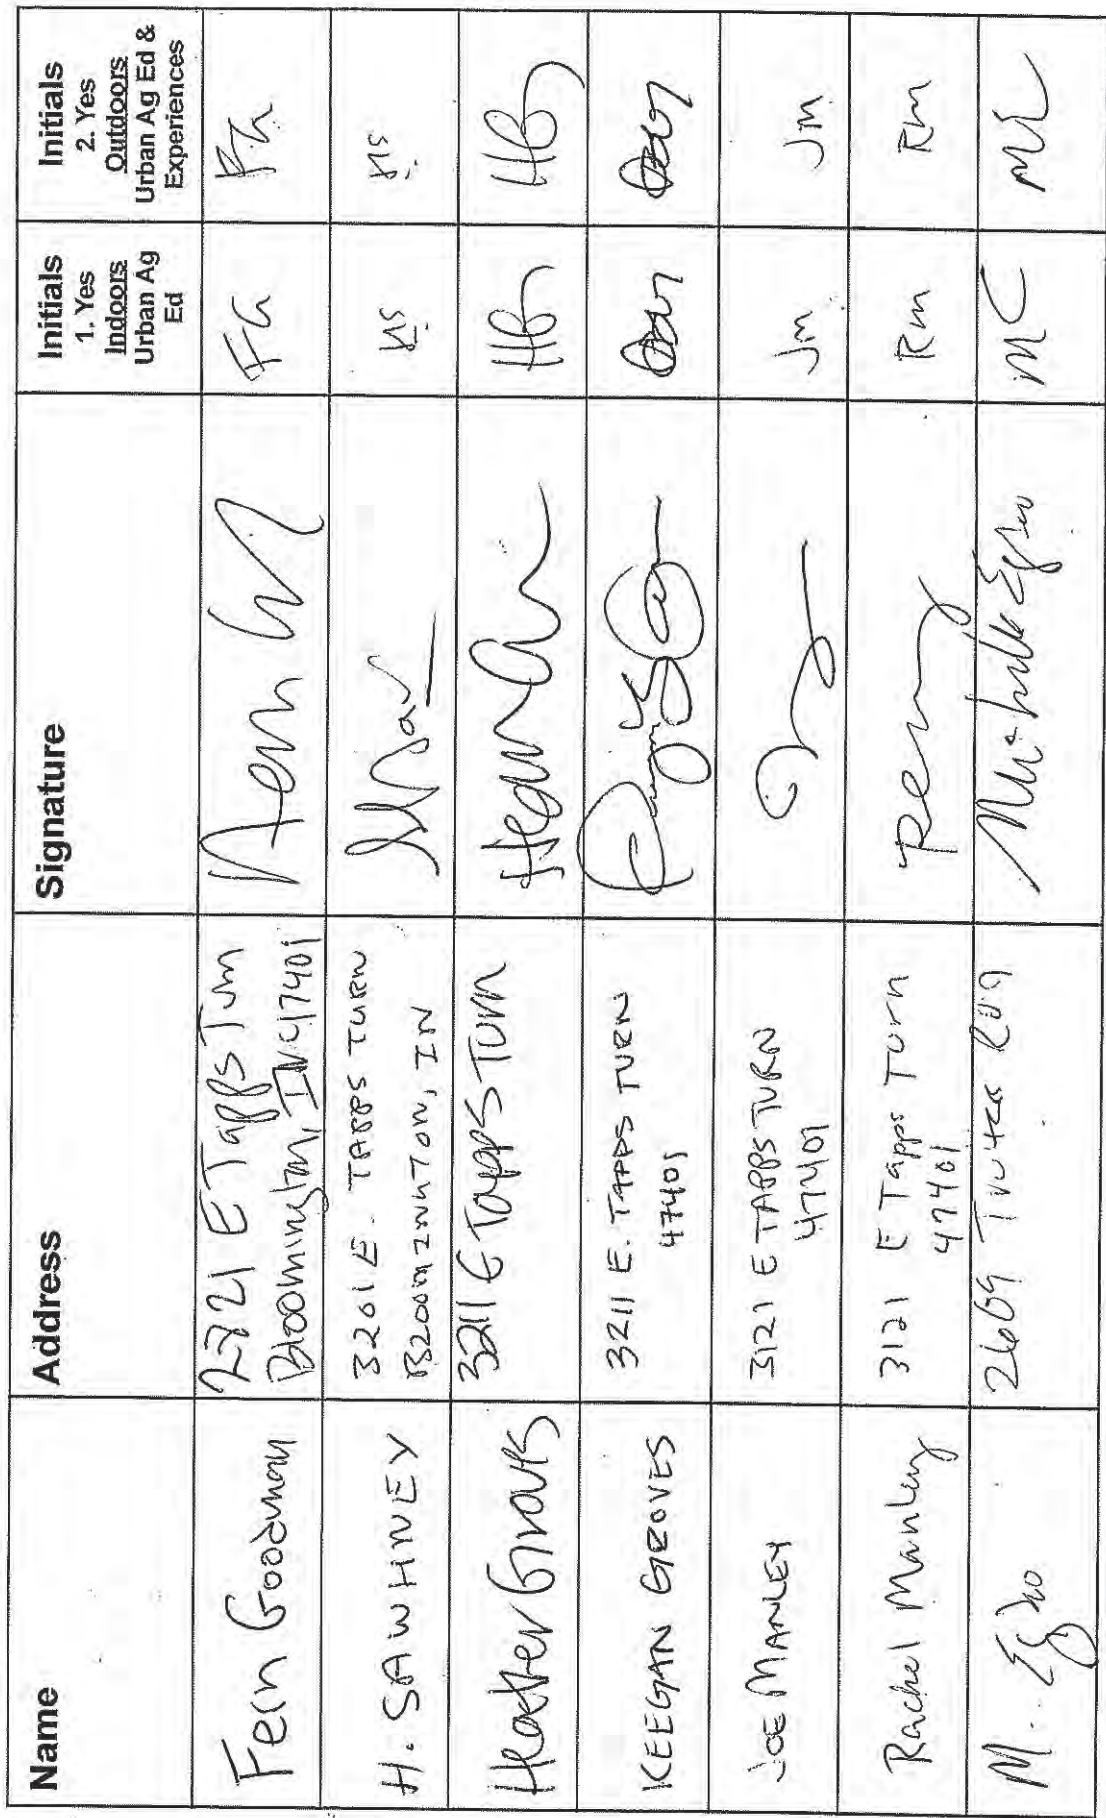 Name
Address
Signature
Initials
1. Yes
Indoors
Urban Ag
Ed
Initials
2. Yes
Outdoors
Urban Ag Ed &
Experiences
Fern Goodman
2721 E Tapps Turn
Bloomington, IN 47401
FG
FG
H. SAWHNEY
3201 E. TAPPS TURN
HS
HS
Heather Groves
3211 E Tapps Turn
HG
HG
KEEGAN GROVES
3211 E. TAPPS TURN
47401
JOE MANLEY
3121 E TAPPS TURN
47401
Jm
Jm
Rachel Manley
3121 E Tapps Turn
47401
Rm
Rm
M.
2609